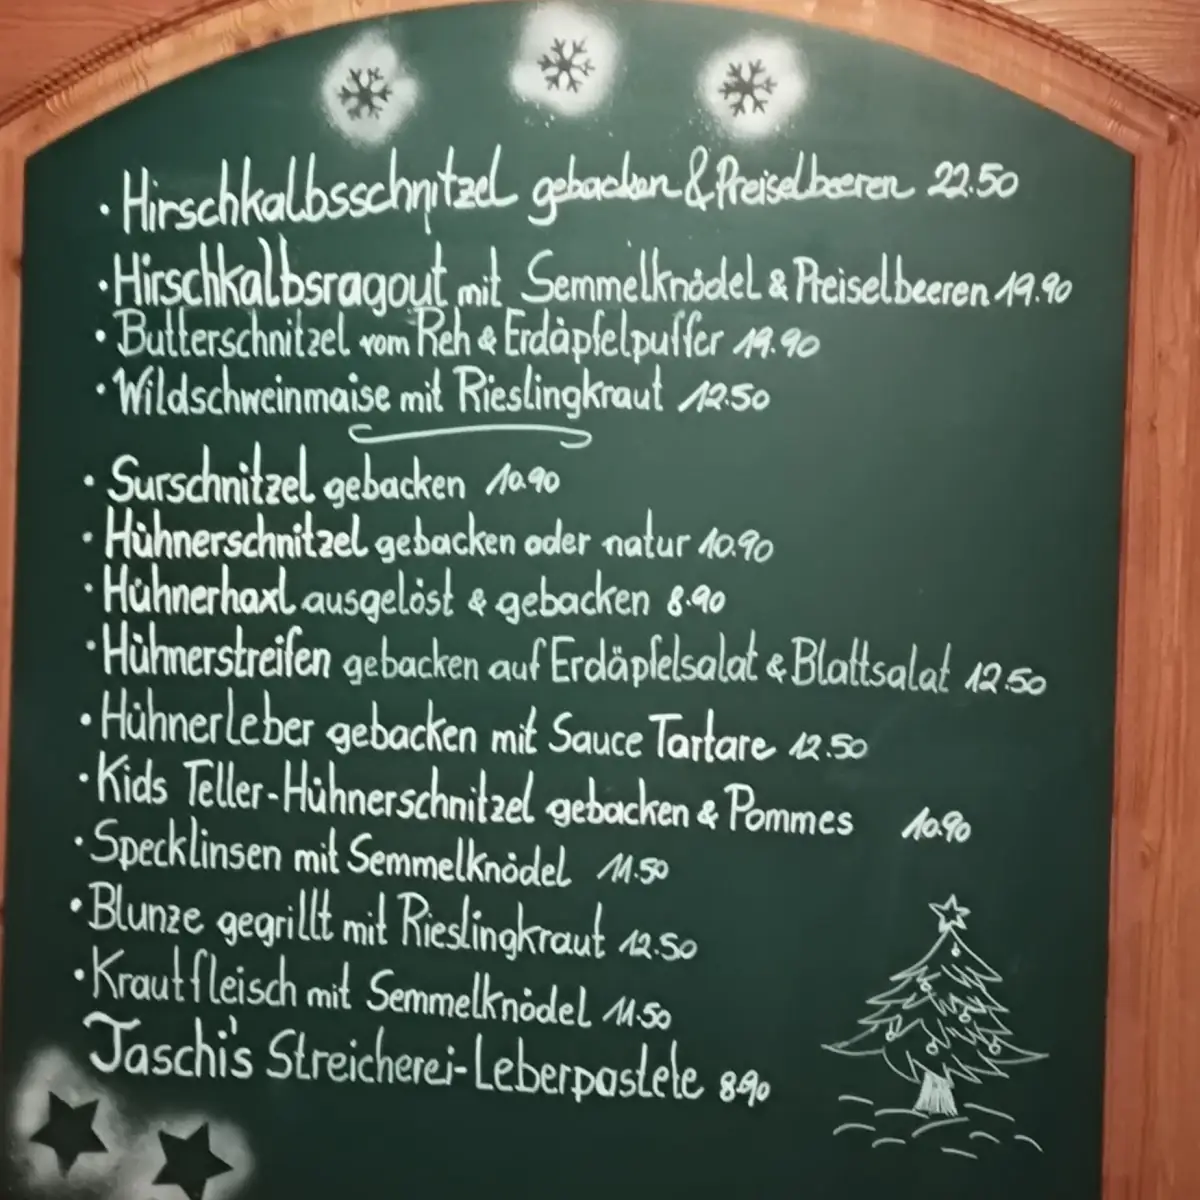 · Hirschkalbsschnitzel gebacken & Preiselbeeren 22.50
· Hirschkalbsragout mit Semmelknödel & Preiselbeeren 19.90
· Butterschnitzel vom Reh & Erdäpfelpuffer 19.90
· Wildschweinmaise mit Rieslingkraut 12.50
· Surschnitzel gebacken 10.90
· Hühnerschnitzel gebacken oder natur 10.90
· Hühnerhaxl ausgelöst & gebacken 8.90
· Hühnerstreifen gebacken auf Erdäpfelsalat & Blattsalat 12.50
· Hühnerleber gebacken mit Sauce Tartare 12.50
· Kids Teller-Hühnerschnitzel gebacken & Pommes 10.90
· Specklinsen mit Semmelknödel 11.50
· Blunze gegrillt mit Rieslingkraut 12.50
· Krautfleisch mit Semmelknödel 11.50
Jaschi's Streicherei-Leberpastete 8.90